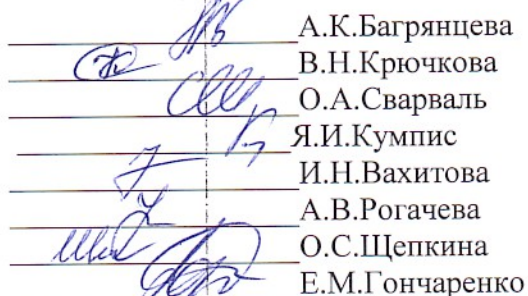 А.К.Багрянцева
В.Н.Крючкова
О.А.Сварваль
Я.И.Кумпис
И.Н.Вахитова
А.В.Рогачева
О.С.Щепкина
Е.М.Гончаренко